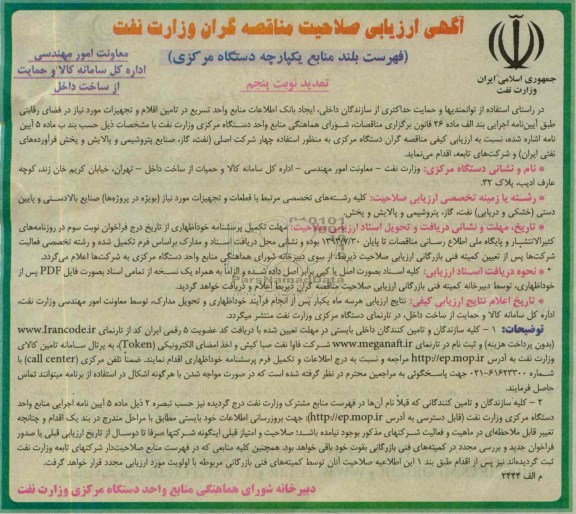 آگهی ارزیابی صلاحیت مناقصه گران وزارت نفت
(فهرست بلند منابع یکپارچه دستگاه مرکزی)
تمدید نوبت پنجم
جمهوری اسلامی ایران
وزارت نفت
معاونت امور مهندسی
اداره کل سامانه کالا و حمایت
از ساخت داخل
در راستای استفاده از توانمندیها و حمایت حداکثری از سازندگان داخلی، ایجاد بانک اطلاعات منابع واحد تسریع در تامین اقلام و تجهیزات مورد نیاز در فضای رقابتی
طبق آیین‌نامه اجرایی بند الف ماده ۲۶ قانون برگزاری مناقصات، شورای هماهنگی منابع واحد دستگاه مرکزی وزارت نفت با مشخصات ذیل حسب بند ب ماده ۵ آیین
نامه اشاره شده، نسبت به ارزیابی کیفی مناقصه گران دستگاه مرکزی به منظور استفاده چهار شرکت اصلی (نفت، گاز، صنایع پتروشیمی و پالایش و پخش فرآورده‌های
نفتی ایران) و شرکت‌های تابعه، اقدام می‌نماید.
* نام و نشانی دستگاه مرکزی: وزارت نفت – معاونت امور مهندسی – اداره کل سامانه کالا و حمیات از ساخت داخل – تهران، خیابان کریم خان زند، کوچه
عارف ادیب، پلاک ۳۲.
* رشته یا زمینه تخصصی ارزیابی صلاحیت: کلیه رشته‌های تخصصی مرتبط با قطعات و تجهیزات مورد نیاز (بویژه در پروژه‌ها) صنایع بالادستی و پایین
دستی (خشکی و دریایی) نفت، گاز، پتروشیمی و پالایش و پخش.
* تاریخ، مهلت و نشانی دریافت و تحویل اسناد ارزیابی صلاحیت: مهلت تکمیل پرسشنامه خوداظهاری از تاریخ درج فراخوان نوبت سوم در روزنامه‌های
کثیرالانتشار و پایگاه ملی اطلاع رسانی مناقصات تا پایان ۱۳۹۴/۷/۳۰ بوده و نشانی محل دریافت اسناد و مدارک براساس فرم تکمیل شده و رشته تخصصی فعالیت
شرکت‌ها پس از تعیین کمیته فنی بازرگانی ارزیابی صلاحیت ذیربط، از سوی دبیرخانه شورای هماهنگی منابع واحد دستگاه مرکزی به شرکت‌ها اعلام می‌گردد.
* نحوه دریافت اسناد ارزیابی: کلیه اسناد بصورت اصل یا کپی برابر اصل داده شده و الزاماً به همراه یک نسخه از تمامی اسناد بصورت فایل PDF پس از
خوداظهاری، توسط دبیرخانه کمیته فنی بازرگانی ارزیابی صلاحیت مناقصه گران ذیربط اعلام و دریافت خواهد گردید.
* تاریخ اعلام نتایج ارزیابی کیفی: نتایج ارزیابی هرسه ماه یکبار پس از انجام فرآیند خوداظهاری و تحویل مدارک، توسط معاونت امور مهندسی وزارت نفت،
اداره کل سامانه کالا و حمایت از ساخت داخل، در تارنمای دستگاه مرکزی وزارت نفت منتشر میگردد.
توضیحات: ۱ – کلیه سازندگان و تامین کنندگان داخلی بایستی در مهلت تعیین شده با دریافت کد عضویت ۵ رقمی ایران کد از تارنمای www.Irancode.ir
(بدون پرداخت هزینه) و ثبت نام در تارنمای www.meganaft.ir شرکت فاوا نفت صبا کیش و اخذ امضای الکترونیکی (Token)، به پرتال سامانه تامین کالای
وزارت نفت به آدرس http://ep.mop.ir مراجعه و نسبت به درج اطلاعات و تکمیل فرم پرسشنامه خوداظهاری اقدام نمایند. ضمناً تلفن مرکزی (call center) با
شماره ۶۱۶۲۳۳۰۰-۰۲۱ جهت پاسخگوئی به مراجعین محترم در نظر گرفته شده است که در صورت مواجه شدن با هرگونه اشکال در استفاده از برنامه میتوانند تماس
حاصل فرمایند.
۲ – کلیه سازندگان و تامین کنندگانی که قبلاً نام آن‌ها در فهرست منابع مشترک وزارت نفت درج گردیده نیز حسب تبصره ۲ ذیل ماده ۵ آیین نامه اجرایی منابع واحد
دستگاه مرکزی وزارت نفت (قابل دسترسی به آدرس http://ep.mop.ir): جهت بروزرسانی اطلاعات خود بایستی مطابق با مراحل مندرج در بند یک اقدام و چنانچه
تغییر قابل ملاحظه‌ای در ماهیت و فعالیت شرکتهای مذکور بوجود نیامده باشد؛ صلاحیت و امتیاز قبلی اینگونه شرکتها صرفا تا دوسال از تاریخ ارزیابی قبلی یا صدور
فراخوان جدید و بررسی مجدد در کمیته‌های فنی بازرگانی بقوت خود باقی خواهد بود. همچنین کلیه منابعی که در فهرست منابع صلاحیت‌دار شرکتهای تابعه وزارت نفت
ثبت گردیده‌اند نیز پس از اقدام طبق بند ۱ این اطلاعیه صلاحیت آنان توسط کمیته‌های فنی بازرگانی مربوطه با اولویت مورد ارزیابی مجدد قرار خواهد گرفت.
م الف ۲۴۴۴
دبیرخانه شورای هماهنگی منابع واحد دستگاه مرکزی وزارت نفت
ParsNamadData